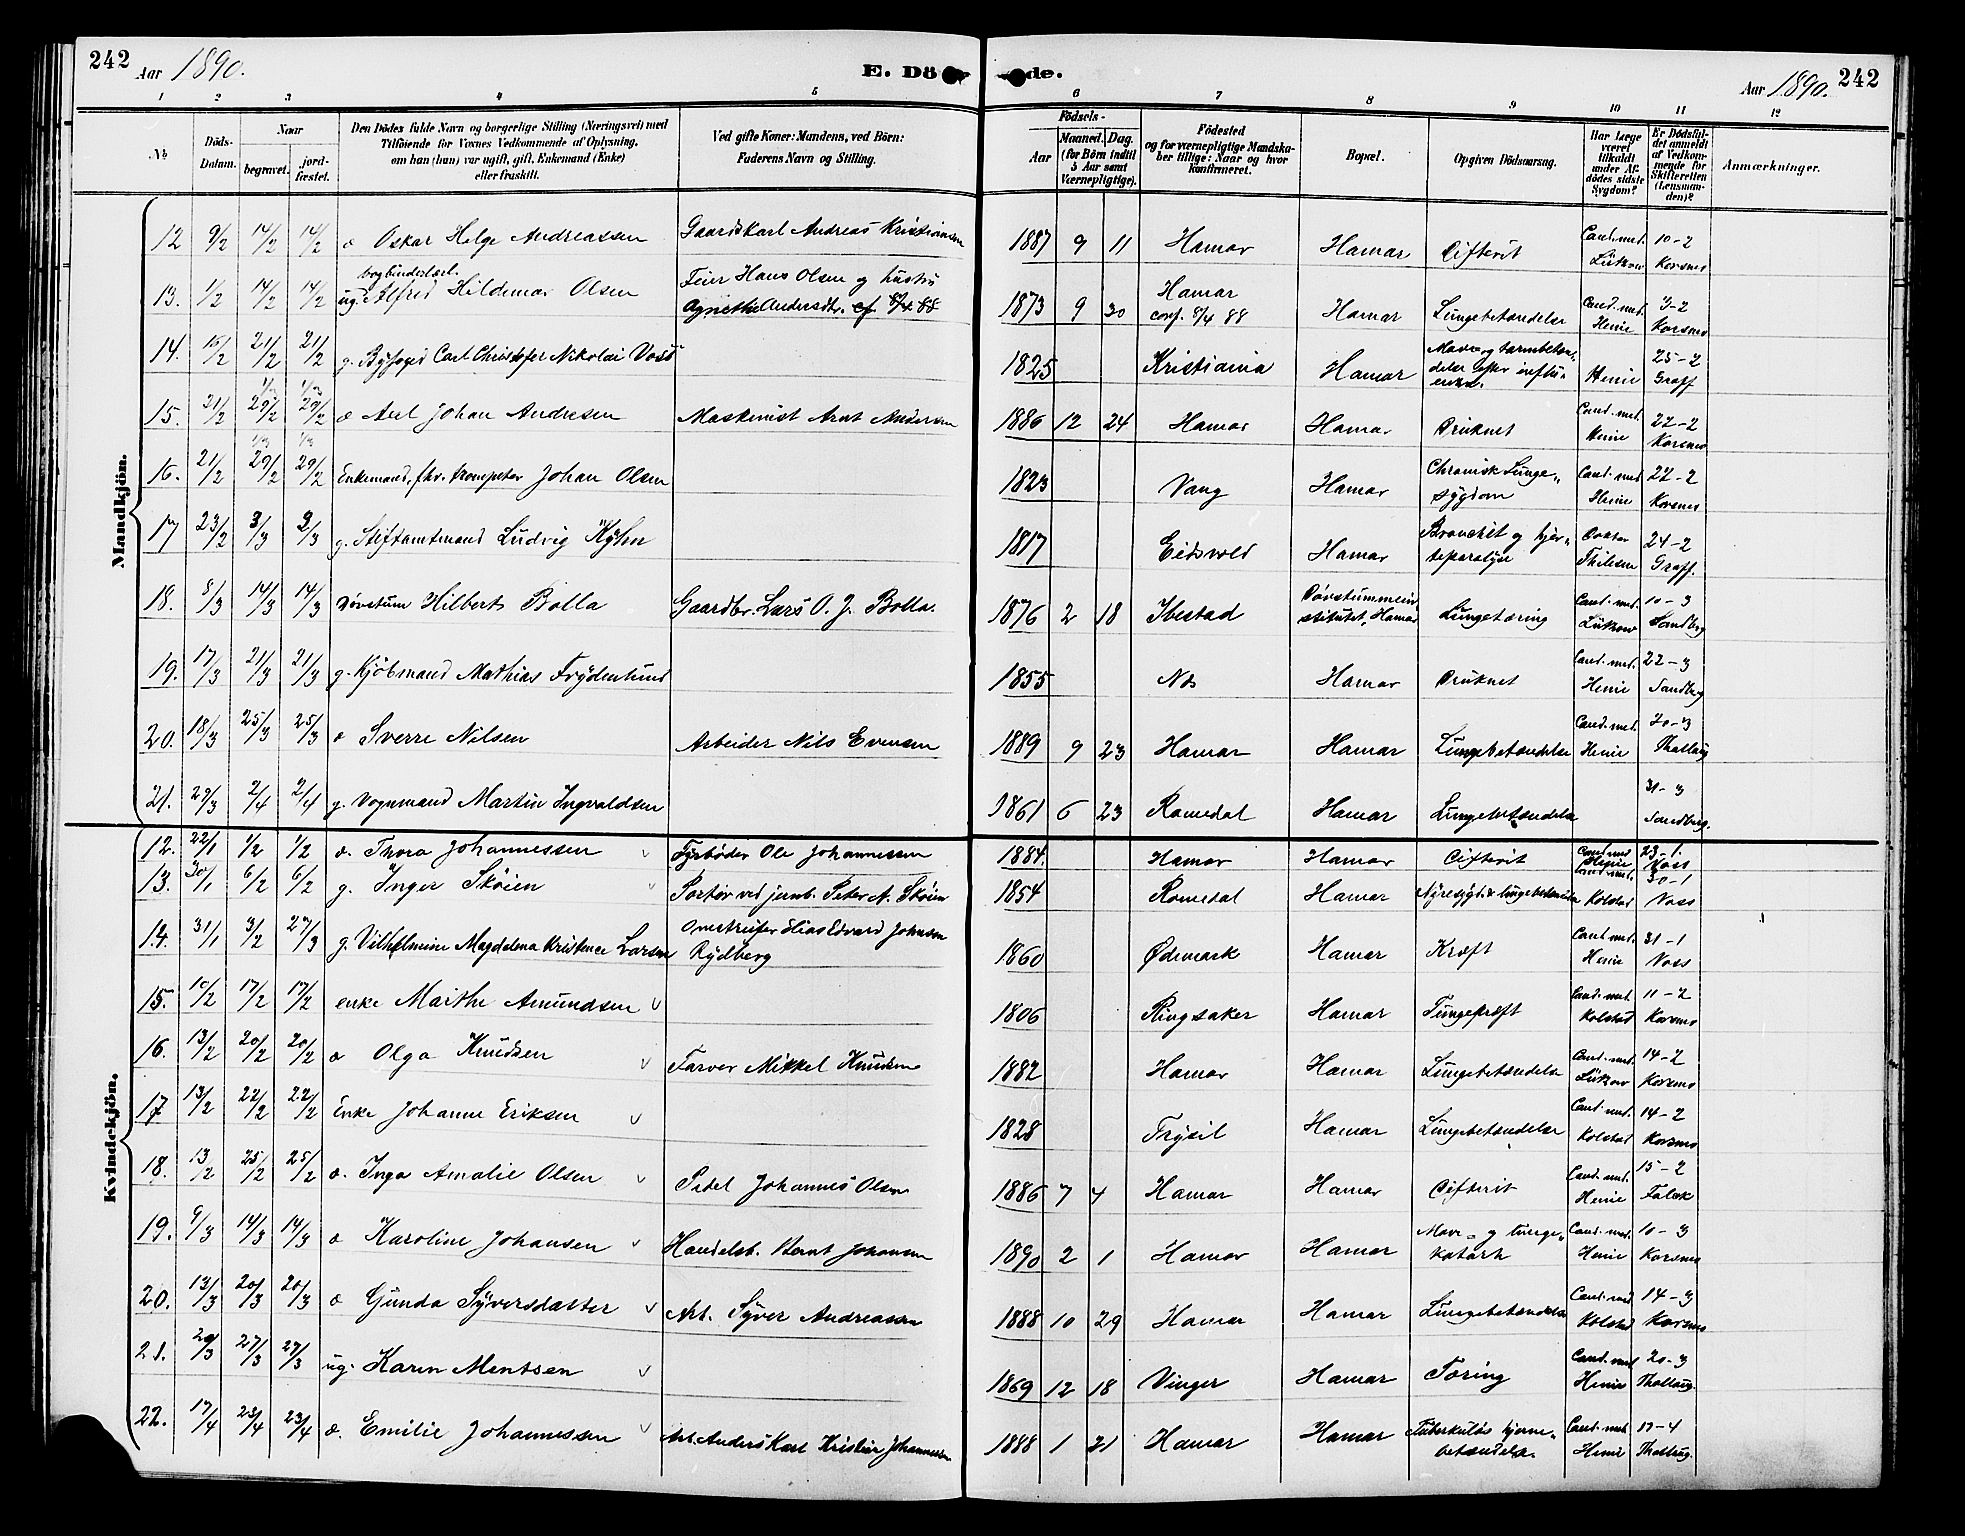 242 Aar 1890. E. Dö de. Aar 1890. 242
1 2 3 4 5 6 7 8 9 10 11 12
№
Döds-Datum.
Naar begravet. jord-fæstet.
Den Dödes fulde Navn og borgerlige Stilling (Næringsvei) med Tilföiende for Voxnes Vedkommende af Oplysning, om han (hun) var ugift, gift, Enkemand (Enke) eller fraskilt.
Ved gifte Koner: Mandens, ved Börn: Faderens Navn og Stilling.
Födsels-
Aar Maaned. Dag. (for Börn indtil 5 Aar samt Værnepligtige).
Födested og for værnepligtige Mandskaber tillige: Naar og hvor konfirmeret.
Bopæl.
Opgiven Dödsaarsag.
Har Læge været tilkaldt under Afdödes sidste Sygdom?
Er Dödsfaldet anmeldt af Vedkommende for Skifteretten (Lensmanden)?
Anmærkninger.
Mandkjön.
12 9/2 14/2 14/2 o Oskar Helge Andreassen Gaardskarl Andreas Kristiansen 1887 9 11 Hamar Hamar Difterit Cand. med. Lützow 10-2 Korsmo
13. 1/2 14/2 14/2 ug. bogbinderlærl. Alfred Hildemar Olsen Feier Hans Olsen og hustru Agnethe Andersdtr. cf. 8/4 88 1873 9 30 Hamar conf. 8/4 88 Hamar Lungebetændelse Cand. med. Henie 3-2 Korsmo
14. 15/2 21/2 21/2 g. Byfoged Carl Christofer Nikolai Voss 1825 Kristiania Hamar Mave- og tarmbetændelse efter influenza. Henie 25-2 Graff
15. 21/2 29/2 29/2 o Axel Johan Andresen Maskinist Arnt Andersen 1886 12 24 Hamar Hamar Druknet Cand. med. Henie 22-2 Korsmo
16. 21/2 29/2 29/2 Enkemand, fhv. trompeter Johan Olsen 1823 Vang Hamar Chronisk Lungesygdom Cand. med Henie 22-2 Korsmo
17 23/2 3/3 3/3 g. Stiftamtmand Ludvig Kyhn 1817 Eidsvold Hamar Bronchit og hjerteparalyse Doktor Thilesen 24-2 Graff.
18. 8/3 14/3 14/3 Døvstum Hilbert Bolla Gaardbr. Lars O. J. Bolla. 1876 2 18 Ibestad Døvstummeinstitutet, Hamar Lungetæring Cand. med. Lützow 10-3 Sandberg
19. 17/3 21/3 21/3 g. Kjøbmand Mathias Frydenlund 1855 Næs Hamar Druknet Cand. med. Henie 22-3 Sandberg
20. 18/3 25/3 25/3 o Sverre Nilsen Arbeider Nils Evensen 1889 9 23 Hamar Hamar Lungebetændelse Cand. med. Henie 20-3 Thallaug
21. 29/3 2/4 2/4 g. Vognmand Martin Ingvaldsen 1861 6 23 Romedal Hamar Lungebetændelse 31-3 Sandberg.
Kvindekjön.
12. 22/1 1/2 1/2 o. Thora Johannessen Fyrbøder Ole Johannessen 1884. Hamar Hamar Difterit Cand med Henie 23-1. Voss
13. 30/1 6/2 6/2 g. Inger Skøien Portør ved jernb. Peter N. Skøien 1854 Romedal Hamar Nyresygd. & lungebetændelse Cand. med. Kolstad 30-1 Voss
14. 31/1 3/2 27/3 g. Vilhelmine Magdalena Kristence Larsen Omstreifer Elias Edvard Johnsen Rydberg 1860 Ødemark Hamar Kræft Cand. med. Henie 31-1 Voss
15. 10/2 17/2 17/2 enke Marthe Amundsen 1806 Ringsaker Hamar Tungekræft Cand. med. Kolstad 11-2 Korsmo
16. 13/2 20/2 20/2 o Olga Knudsen Farver Mikkel Knudsen 1882 Hamar Hamar Lungebetændelse Cand. med. Lützow 14-2 Korsmo
17 13/2 22/2 22/2 Enke Johanne Eriksen 1828 Trysil Hamar Lungebetændelse Cand. med. Kolstad 14-2 Korsmo
18. 13/2 25/2 25/2 o. Inga Amalie Olsen Pedel Johannes Olsen 1886 7 4 Hamar Hamar Difterit Cand. med. Henie 15-2 Falck
19. 9/3 14/3 14/3 o Karoline Johansen Handelsb. Bernt Johansen 1890 2 1 Hamar Hamar Mave- og lungekatarh Cand. med. Henie 10-3 Korsmo
20. 13/3 20/3 20/3 o Gunda Syversdatter Arb. Syver Andreassen 1888 10 29 Hamar Hamar Lungebetændelse Cand. med Kolstad 14-3 Korsmo
21. 20/3 27/3 27/3 ug. Karen Mentsen 1869 12 18 Vinger Hamar Tæring Cand. med Henie 20-3 Thallaug.
22. 17/4 23/4 23/4 o. Emilie Johannessen Arb. Anders Karl Kristian Johannessen 1888 1 21 Hamar Hamar Tuberkuløs hjernebetændelse. Cand. med Henie 17-4 Thallaug.